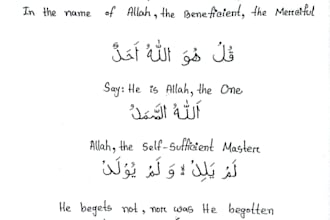 In the name of Allah, the Beneficient, the Merciful
قُلْ هُوَ اللّٰهُ اَحَدٌ
Say: He is Allah, the One
اَللّٰهُ الصَّمَدُ
Allah, the Self-Sufficient Master
لَمْ يَلِدْ ۙ وَ لَمْ يُوْلَدْ
He begets not, nor was He begotten